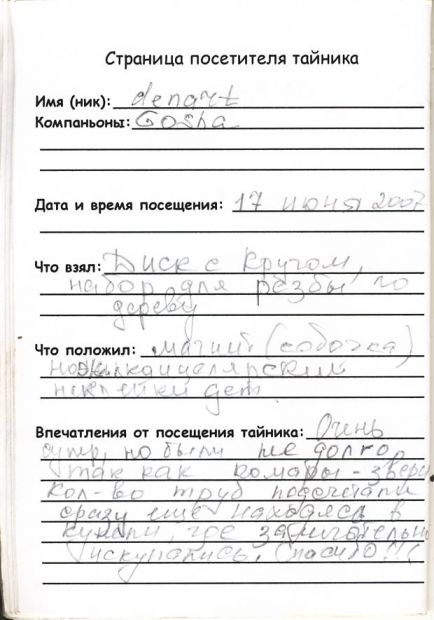 Страница посетителя тайника
Имя (ник): denart
Компаньоны: Gosha
Дата и время посещения: 17 июня 2007
Что взял: Диск с Кругом,
набор для резьбы по
дереву
Что положил: магнит (собачка)
нож канцелярский
наклейки дет.
Впечатления от посещения тайника: Очень
супер, но были не долго,
так как комары - звери
Кол-во труб подсчитали
сразу еще находясь в
купели, где замечательно
искупались, Спасибо!!!